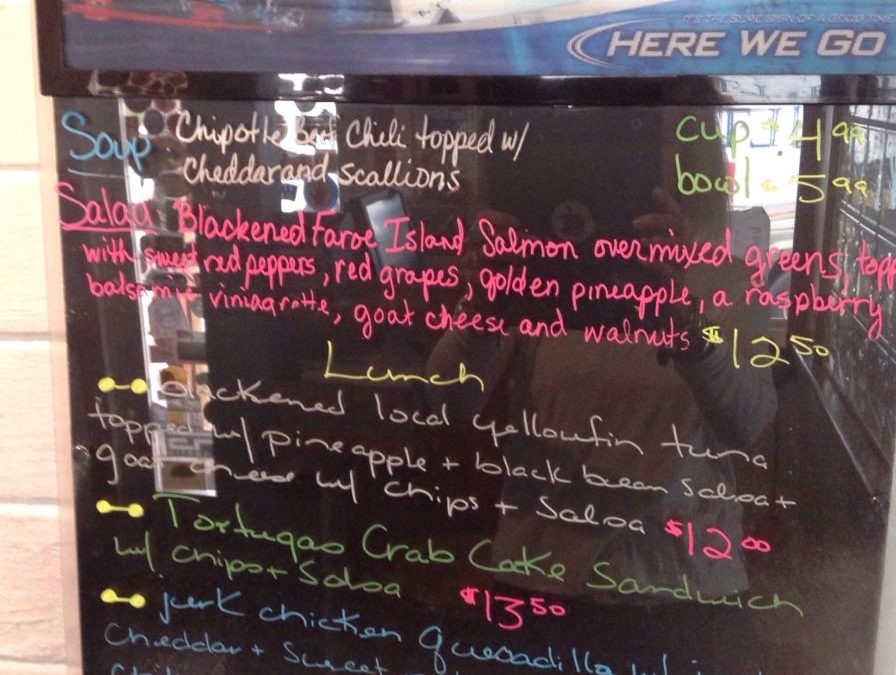 IT'S THE SURE SIGN OF A GOOD TIME
HERE WE GO
Soup Chipotle Beef Chili topped w/ cup $4.99
Cheddar and scallions bowl $5.99
Salad Blackened Faroe Island Salmon over mixed greens, topp
with sweet red peppers, red grapes, golden pineapple, a raspberry
balsamic viniagrotte, goat cheese and walnuts $12.50
Lunch
blackened local yellowfin tuna
topped w/ pineapple + black bean salsa +
goat cheese w/ chips + Salsa $12.00
Tortugas Crab Cake Sandwich
w/ chips + Salsa $13.50
jerk chicken quesadilla w/
Cheddar + Sweet